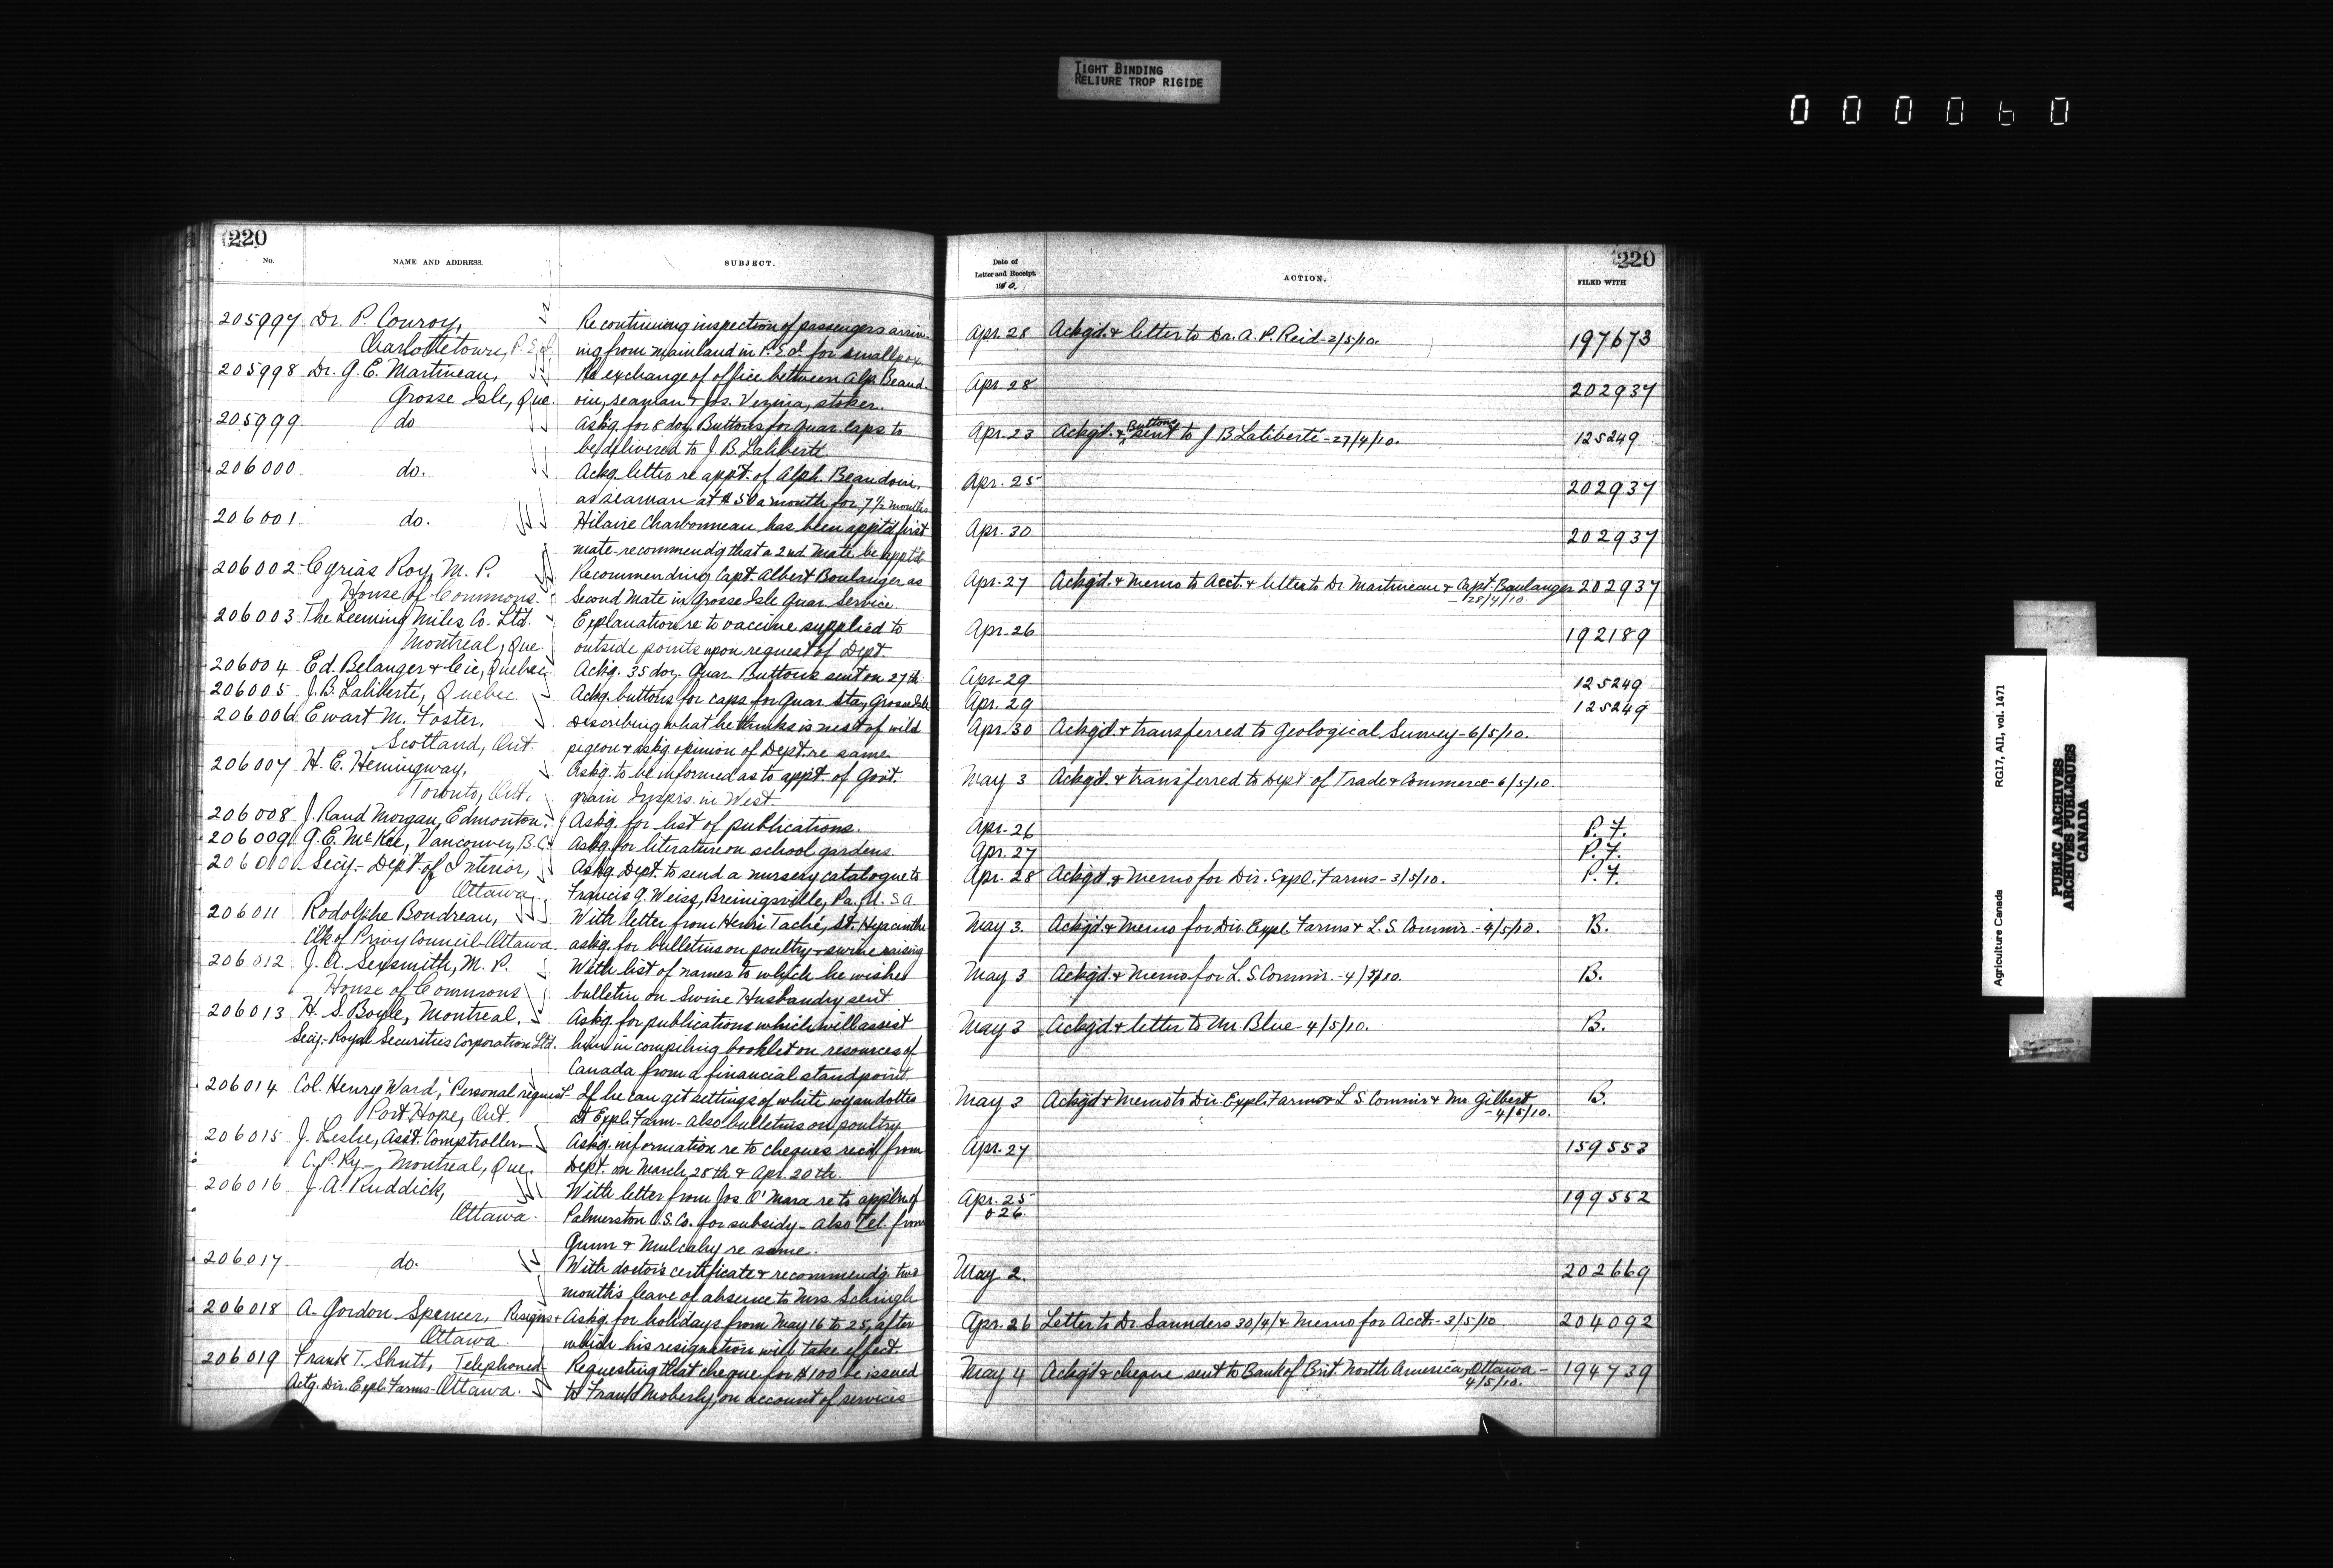 TIGHT BINDING
RELIURE TROP RIGIDE
000060
220
No.
NAME AND ADDRESS.
SUBJECT.
205997 Dr. P. Conroy, Re continuing inspection of passengers arriv-
Charlottetown, P.E.I. ing from mainland in P.E.I. for smallpox
205998 Dr. G. E. Martineau, Re exchange of office between Alp. Beaud-
Grosse Isle, Que. oin, seaman & Jos. Vezina, stoker.
205999 do Askg. for 8 doz. Buttons for Quar. Caps to
be delivered to J. B. Laliberte
206000 do. Ackg. letter re appt. of Alph. Beaudoin,
as seaman at $50 a month for 7 1/2 months
206001 do. Hilaire Charbonneau has been apptd first
mate-recommendg that a 2nd Mate be apptd
206002 Cyrias Roy, M. P. Recommending Capt. Albert Boulanger as
House of Commons. Second Mate in Grosse Isle Quar. Service.
206003 The Leeming Miles Co. Ltd. Explanation re to vaccine supplied to
Montreal, Que. outside points upon request of Dept.
206004 Ed. Belanger & Cie, Quebec Ackg. 35 doz. Quar. Buttons sent on 27th
206005 J. B. Laliberté, Quebec Ackg. buttons for caps for Quar. Sta, Grosse Isle
206006 Ewart M. Foster, Describing what he thinks is nest of wild
Scotland, Ont. pigeon & askg. opinion of Dept. re same.
206007 H. E. Hemingway, Askg. to be informed as to appt. of Govt.
Toronto, Ont. grain Insprs. in West.
206008 J. Rand Morgan, Edmonton. Askg. for list of publications.
206009 G. E. McKee, Vancouver, B.C. Askg. for literature on school gardens
206010 Secy.- Dept. of Interior, Askg. Dept. to send a nursery catalogue to
Ottawa. Francis G. Weiss, Breinigsville, Pa. U.S.A.
206011 Rodolphe Boudreau, With letter from Henri Taché, St. Hyacinthe
Clk of Privy Council-Ottawa. askg. for bulletins on poultry & swine raising
206012 J. A. Sexsmith, M. P. With list of names to which he wishes
House of Commons bulletin on Swine Husbandry sent.
206013 H. S. Boyle, Montreal, Askg. for publications which will assist
Secy.- Royal Securities Corporation Ltd. him in compiling booklet on resources of
Canada from a financial standpoint
206014 Col. Henry Ward, Personal request If he can get settings of white wyandottes
Port Hope, Ont. at Expl. Farm - Also bulletins on poultry
206015 J. Leslie, Asst. Comptroller Askg. information re to cheques recd from
C. P. Ry. - Montreal, Que. Dept. on March 28th & Apr. 20th.
206016 J. A. Ruddick, With letter from Jos. O'Mara re to appln of
Ottawa. Palmerston C.S. Co. for subsidy - Also Tel. from
Gunn & Mulcahy re same.
206017 do. With doctor's certificate & recommendg. two
month's leave of absence to Mrs.
206018 A. Gordon Spencer, Resigns & Askg. for holidays from May 16 to 25, after
Ottawa. which his resignation will take effect.
206019 Frank T. Shutt, Telephoned Requesting that cheque for $100 be issued
Actg. Dir. Expl. Farms - Ottawa. to Frank Moberly, on account of services
220
Date of
Letter and Receipt.
1910.
ACTION.
FILED WITH
Apr. 28 Ackgd. & letter to Dr. A. P. Reid - 2/5/10. 197673
Apr. 28 202937
Apr. 23 Ackgd. & Buttons sent to J B Laliberté - 27/4/10. 125249
Apr. 25 202937
Apr. 30 202937
Apr. 27 Ackgd. & Memo to Acct. & letter to Dr Martineau & Capt. Boulanger 202937
- 28/4/10.
Apr. 26 192189
Apr. 29 125249
Apr. 29 125249
Apr. 30 Ackgd. & transferred to Geological Survey - 6/5/10.
May 3 Ackgd. & transferred to Dept. of Trade & Commerce - 6/5/10.
Apr. 26 P. F.
Apr. 27 P. F.
Apr. 28 Ackgd. & Memo for Dir. Expl. Farms - 3/5/10. P. F.
May 3. Ackgd. & Memo for Dir. Expl. Farms & L. S. Commr. - 4/5/10. B.
May 3 Ackgd. & Memo for L. S. Commr. - 4/5/10. B.
May 3 Ackgd. & letter to Mr. Blue - 4/5/10. B.
May 3 Ackgd & Memo to Dir. Expl. Farms & L S Commr & Mr. Gilbert B.
- 4/5/10.
Apr. 27 159553
Apr. 25 199552
& 26.
May 2. 202669
Apr. 26 Letter to Dr. Saunders 30/4/ & Memo for Acct. - 3/5/10. 204092
May 4 Ackgd & cheque sent to Bank of Brit. North America, Ottawa - 194739
4/5/10.
Agriculture Canada RG17, AII, vol. 1471
PUBLIC ARCHIVES
ARCHIVES PUBLIQUES
CANADA